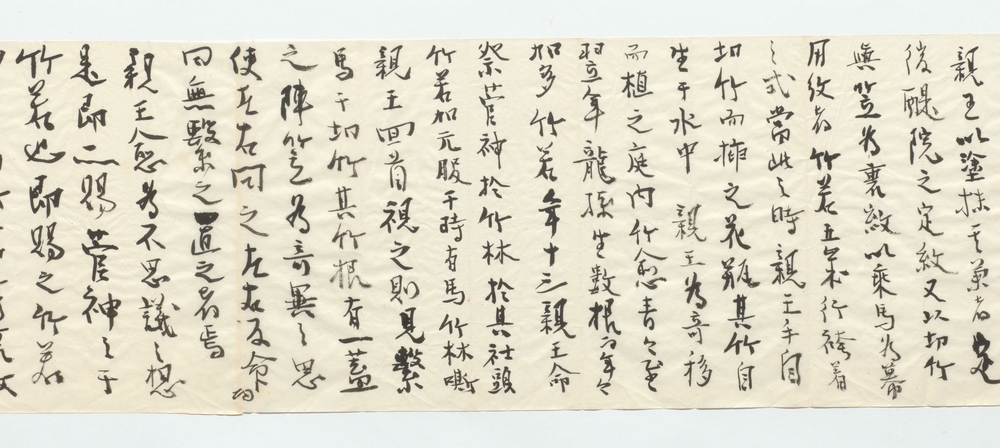 親王以塗抹其菊者是
後醍院之定紋又以切竹
与笠為裏紋以乗馬為幕
用紋者竹若五歳行袴着
之式当此之時親王手自
切竹而挿之花瓶其竹自
生于水中 親王為奇移
而植之庭内竹愈青々至
翌年龍孫生数根而年々
加多竹若年十三親王命
祭菅神於竹林於其社頭
竹若加元服于時有馬竹林嘶
親王回首視之則見繋
馬于切竹其竹根有一蓋
之陣笠為奇異之思
使左右問之左右反命曰
無繋之置之者焉
親王愈為不思議之想
是即二賜菅神之于
竹若也即賜之竹若